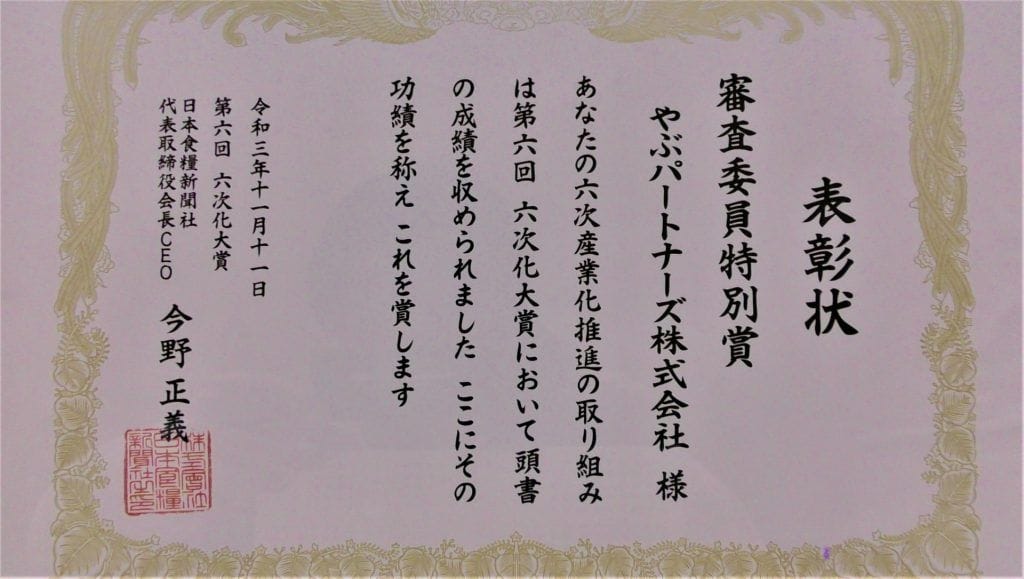 表彰状
審査委員特別賞
やぶパートナーズ株式会社 様
あなたの六次産業化推進の取り組み
は第六回 六次化大賞において頭書
の成績を収められました ここにその
功績を称え これを賞します
令和三年十一月十一日
第六回 六次化大賞
日本食糧新聞社
代表取締役会長CEO 今野正義
株式會社
日本食糧
新聞社之印